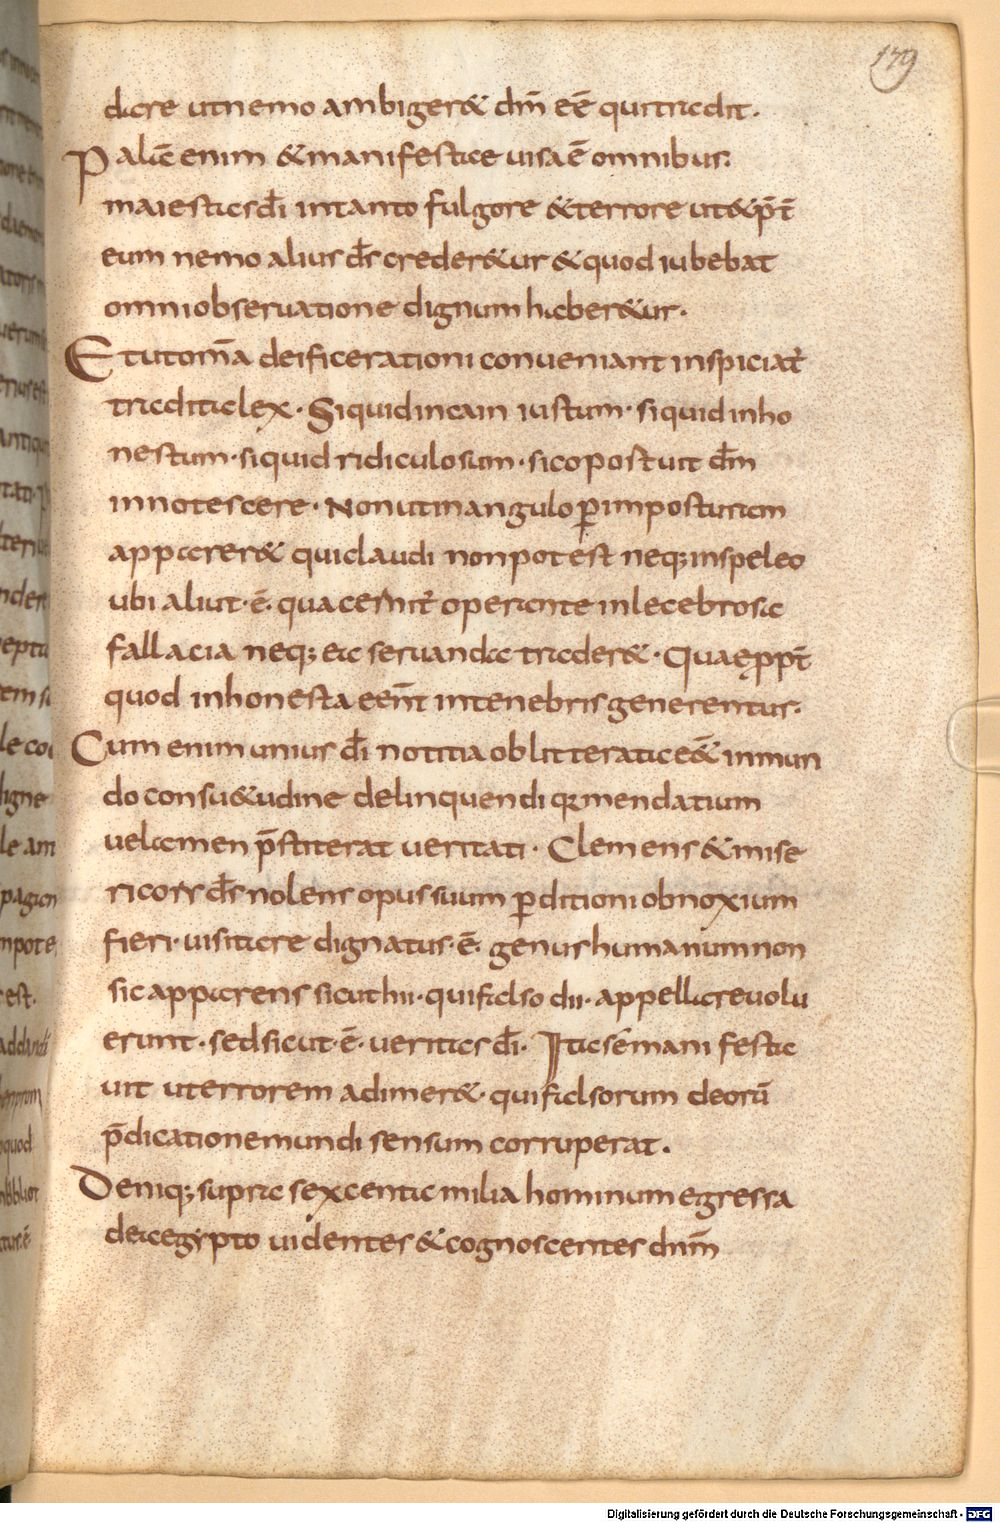 179
dare ut nemo ambiger& dm̄ eē qui tradit.
Palā enim & manifestae uisa ē omnibus.
maiestas dī in tanto fulgore & terrore ut & pt̄
eum nemo alius ds̄ creder&ur & quod iubebat
omni obseruatione dignum haber&ur.
Et ut om̄a deificae rationi conueniant inspiciat̄
tradita lex. Si quid in ea iniustum. si quid inho
nestum. si quid ridiculosum. sic opostuit dm̄
innotescere. Non ut in angulo p̄ imposturam
apparer& qui claudi non potest neq; in speleo
ubi aliut. ē. qua cernit̄ operante inlecebrosa
fallacia neq; ea seruanda trader&. Quae ppt̄
quod inhonesta eēnt in tenebris generentur.
Cum enim unius dī notitia oblitterata eēt in mun
do consu&udine delinquendi q̄ mendatium
uelamen p̄stiterat ueritati. Clemens & mise
ricors ds̄ nolens opus suum p̄ditioni obnoxium
fieri. uisitare dignatus. ē. genus humanum non
sic apparens sicut hii. qui falso dii. appellare uolu
erunt. sed sicut. ē. ueritas dī. Ita sem̄ manifesta
uit ut errorem adimer&. qui falsorum deorū
p̄dicatione mundi sensum corruperat.
Deniq; supra sexcenta milia hominum egressa
de aegypto uidentes & cognoscentes dnm̄
Digitalisierung gefördert durch die Deutsche Forschungsgemeinschaft - DFG